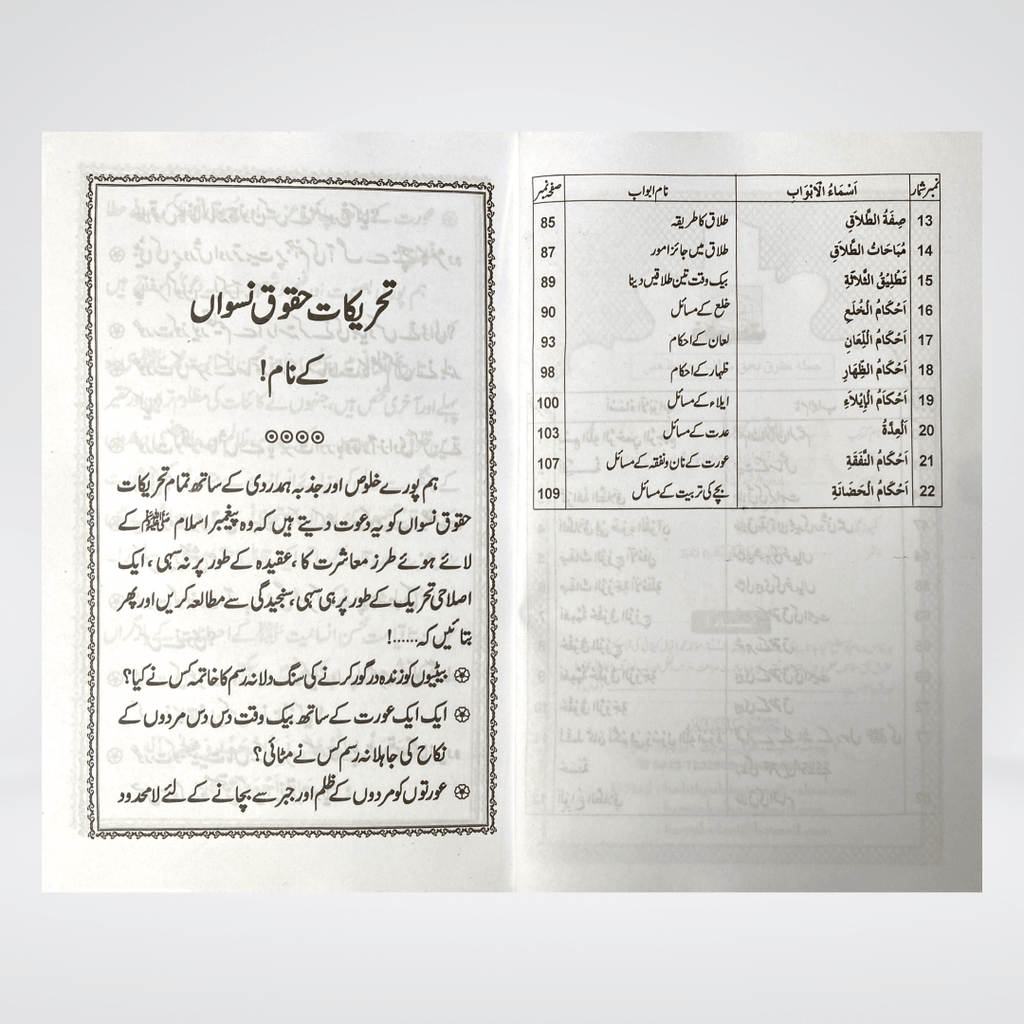 نمبر شمار اَسْمَاءُ الْاَبْوَابِ نام ابواب صفحہ نمبر
13 صِفَةُ الطَّلَاقِ طلاق کا طریقہ 85
14 مُبَاحَاتُ الطَّلَاقِ طلاق میں جائز امور 87
15 تَطْلِيْقُ الثَّلَاثَةِ بیک وقت تین طلاقیں دینا 89
16 اَحْكَامُ الْخُلَعِ خلع کے مسائل 90
17 اَحْكَامُ اللِّعَانِ لعان کے احکام 93
18 اَحْكَامُ الظِّهَارِ ظہار کے احکام 98
19 اَحْكَامُ الْاِيْلَاءِ ایلاء کے مسائل 100
20 اَلْعِدَّةُ عدت کے مسائل 103
21 اَحْكَامُ النَّفَقَةِ عورت کے نان و نفقہ کے مسائل 107
22 اَحْكَامُ الْحَضَانَةِ بچے کی تربیت کے مسائل 109
تحریکات حقوق نسواں
کے نام!
ہم پورے خلوص اور جذبہ ہمدردی کے ساتھ تمام تحریکات
حقوق نسواں کو یہ دعوت دیتے ہیں کہ وہ پیغمبر اسلام ﷺ کے
لائے ہوئے طرز معاشرت کا، عقیدہ کے طور پر نہ سہی، ایک
اصلاحی تحریک کے طور پر ہی سہی، سنجیدگی سے مطالعہ کریں اور پھر
بتائیں کہ......!
بیٹیوں کو زندہ درگور کرنے کی سنگ دلانہ رسم کا خاتمہ کس نے کیا؟
ایک ایک عورت کے ساتھ بیک وقت دس دس مردوں کے
نکاح کی جاہلانہ رسم کس نے مٹائی؟
عورتوں کو مردوں کے ظلم اور جبر سے بچانے کے لئے لامحدود